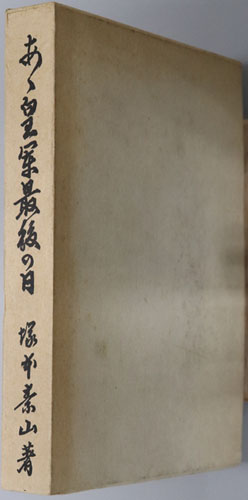 あゝ皇軍最後の日
塚本素山著